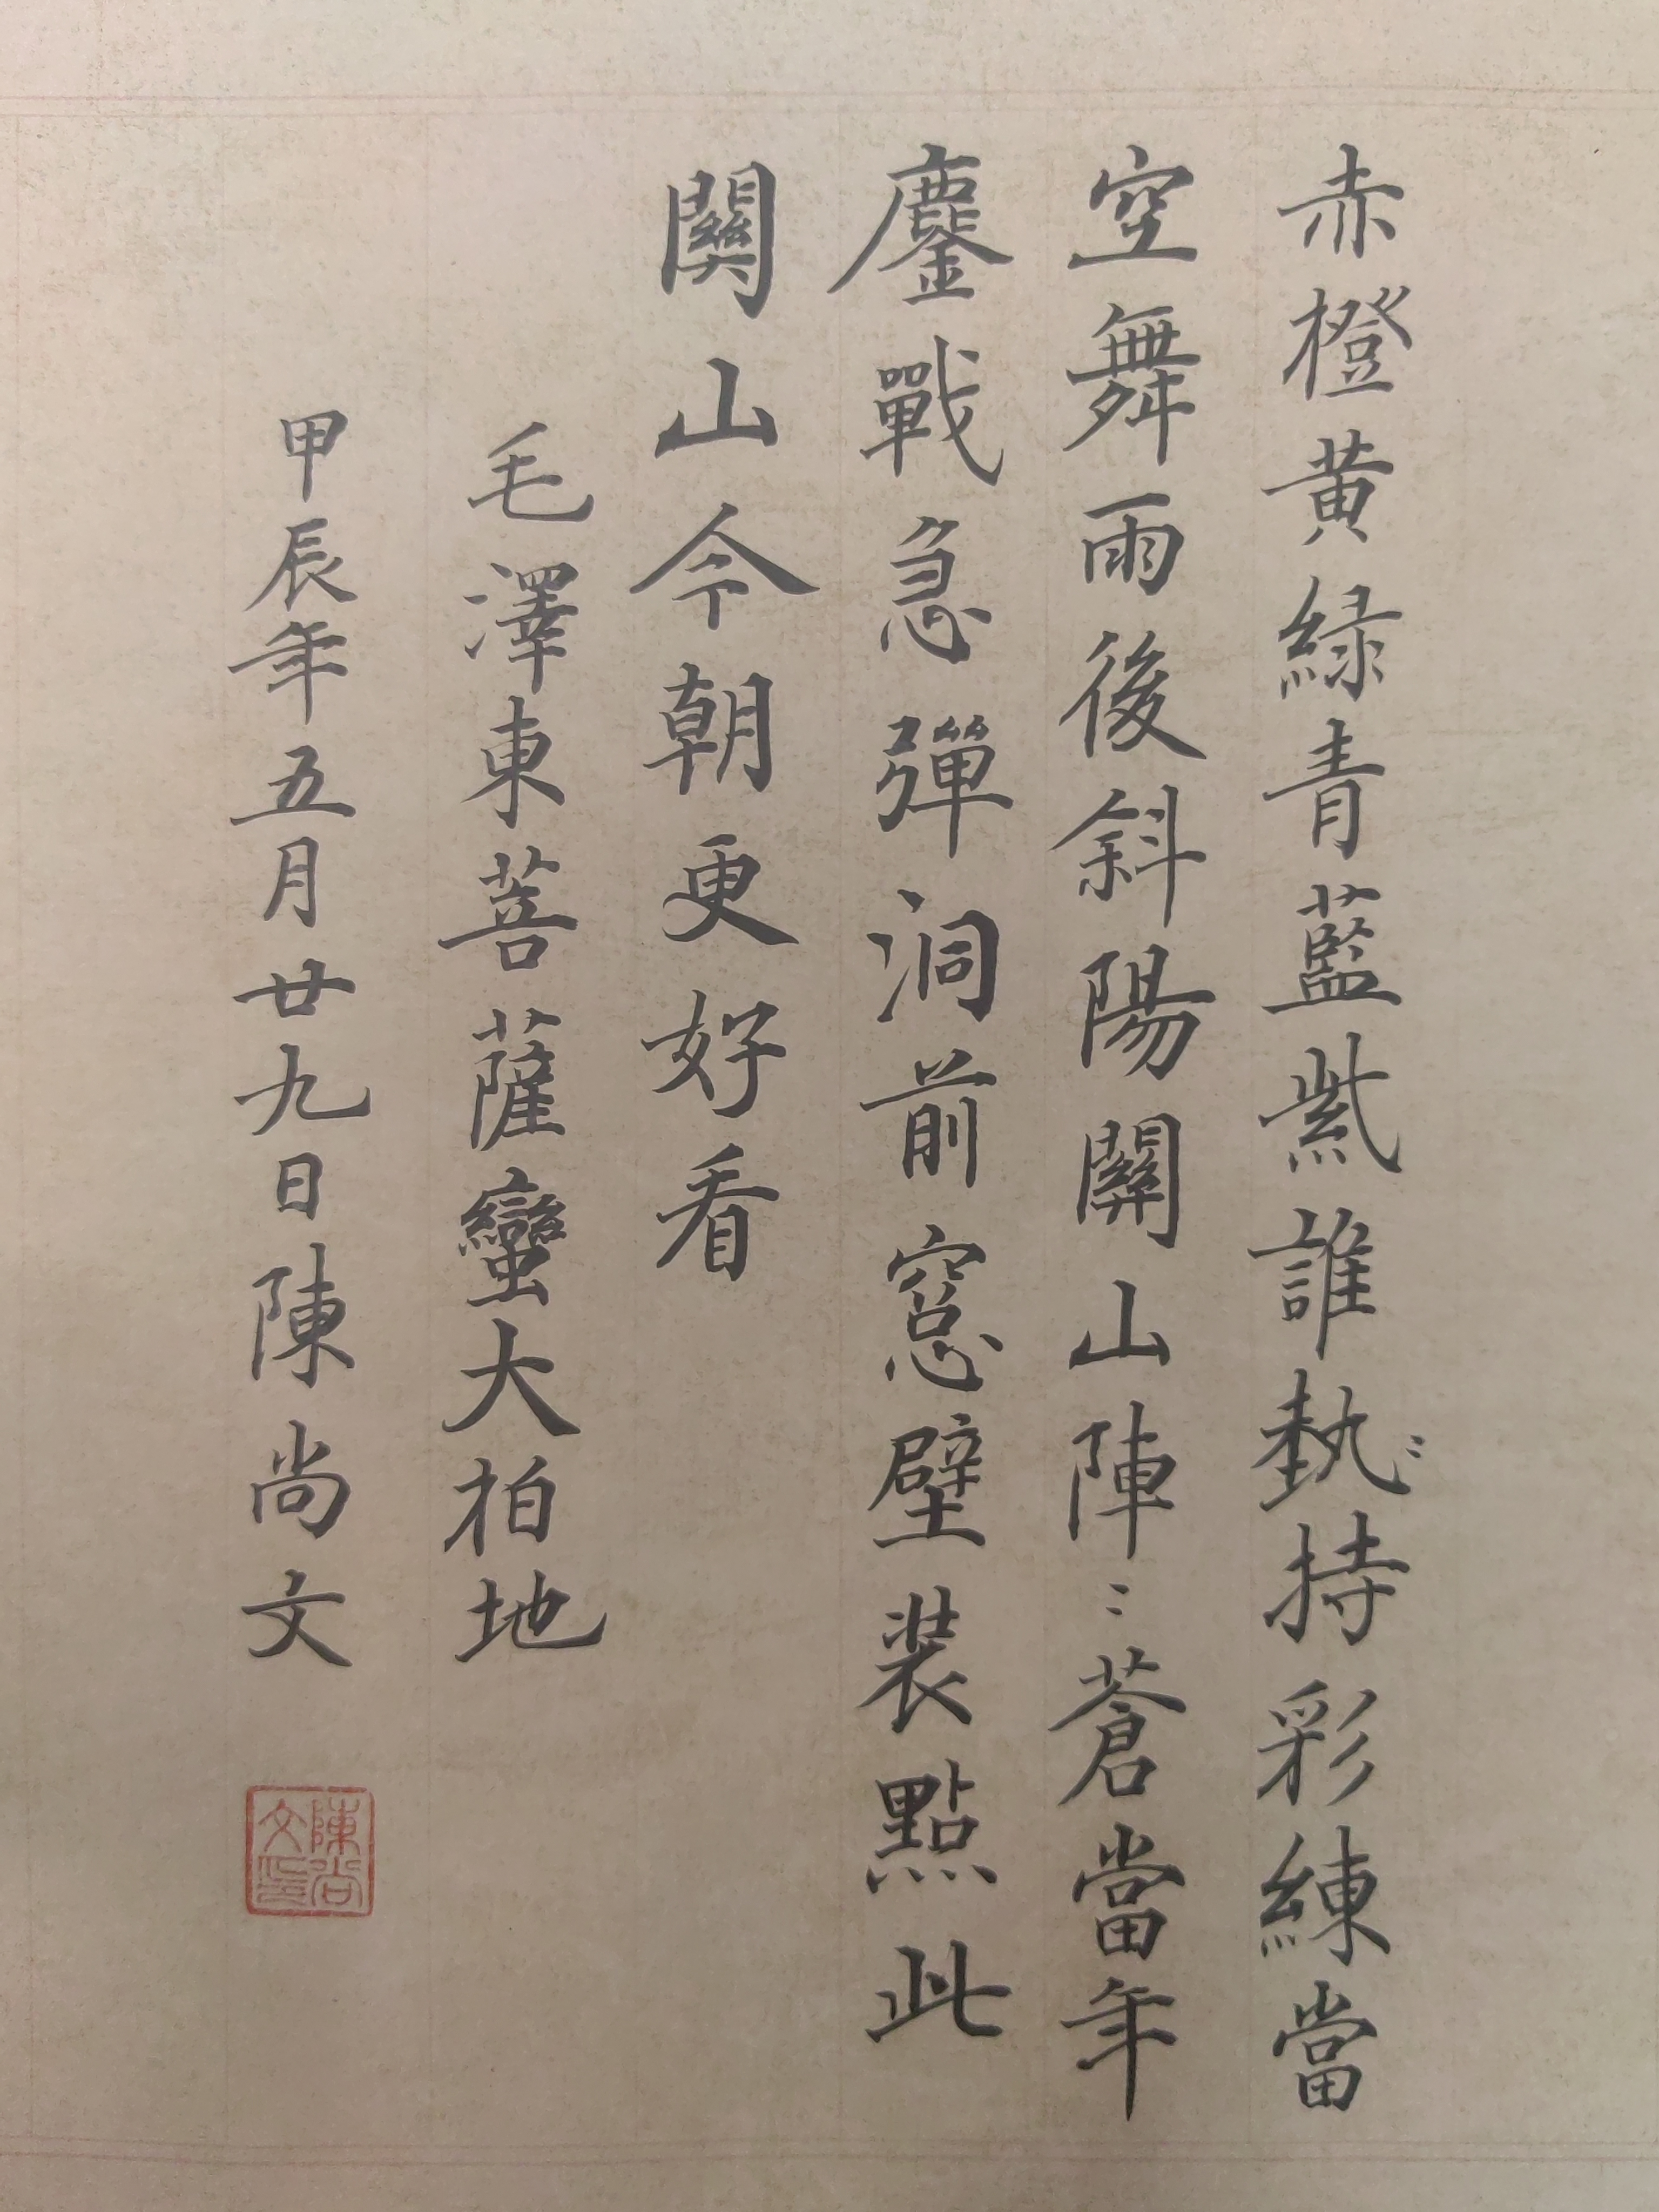 赤橙黄緑青藍紫誰執持彩練當
空舞雨後斜陽關山陣〻蒼當年
鏖戰急彈洞前窓壁装點此
關山今朝更好看
毛澤東菩薩蠻大柏地
甲辰年五月廿九日陳尚文
陳尚文印